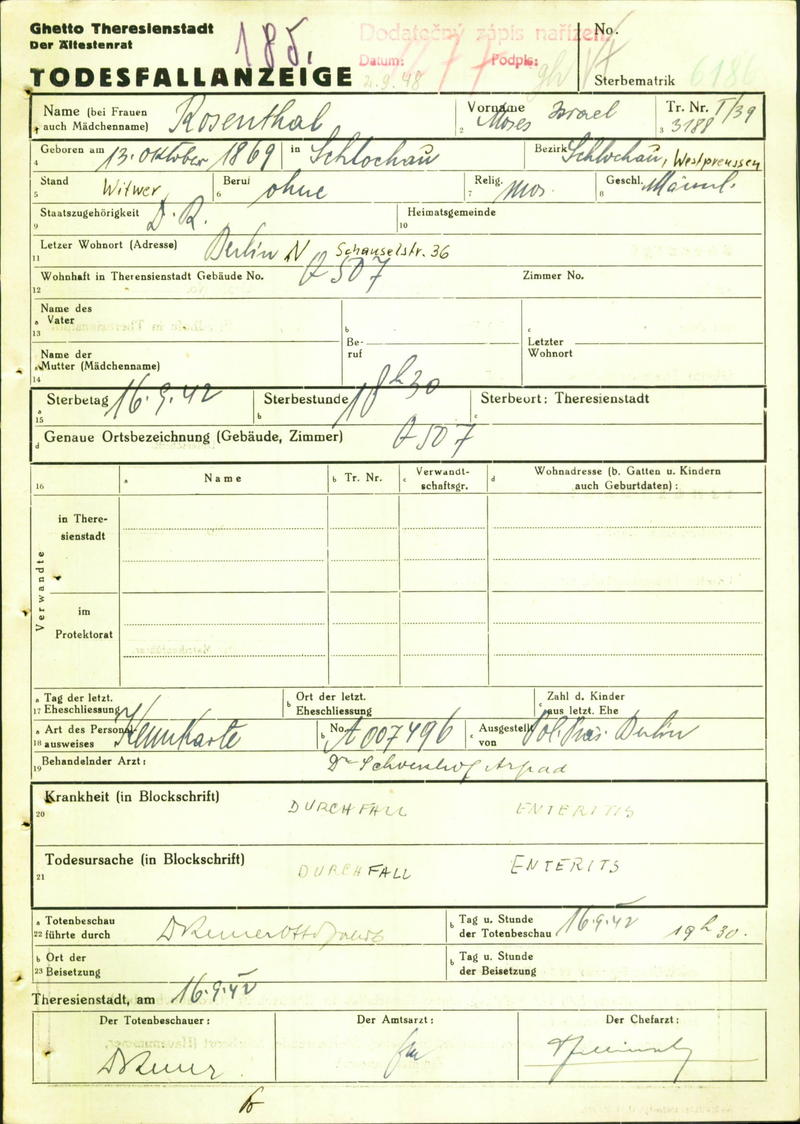 Ghetto Theresienstadt
Der Ältestenrat
185.
Dodatečný zápis nařízen
Datum: 2.9.48 Podpis:
No.
TODESFALLANZEIGE
Sterbematrik 6186
Name (bei Frauen auch Mädchenname) Rosenthal
2 Vorname Moses Israel
3 Tr. Nr. I/39 3188
4 Geboren am 13. Oktober 1869 in Schlochau Bezirk Schlochau, Westpreussen
5 Stand Witwer 6 Beruf ohne 7 Relig. mos. 8 Geschl. Männl.
9 Staatszugehörigkeit D.R. 10 Heimatsgemeinde
11 Letzer Wohnort (Adresse) Berlin N Schauselstr. 36
12 Wohnhaft in Theresienstadt Gebäude No. Q 507 Zimmer No.
13 a Name des Vater b Beruf c Letzter Wohnort
14 a Name der Mutter (Mädchenname)
15 a Sterbetag 16.9.42 b Sterbestunde 18h30 c Sterbeort: Theresienstadt
d Genaue Ortsbezeichnung (Gebäude, Zimmer) Q 507
16 a Name b Tr. Nr. c Verwandtschaftsgr. d Wohnadresse (b. Gatten u. Kindern auch Geburtdaten):
Verwandte
in Theresienstadt
im Protektorat
17 a Tag der letzt. Eheschliessung b Ort der letzt. Eheschliessung c Zahl d. Kinder aus letzt. Ehe
18 a Art des Personalausweises Kennkarte b No. A 007496 c Ausgestellt von Pol. Präs. Berlin
19 Behandelnder Arzt: Dr Schoenhof Arpad
20 Krankheit (in Blockschrift) DURCHFALL ENTERITIS
21 Todesursache (in Blockschrift) DURCHFALL ENTERITS
22 a Totenbeschau führte durch b Tag u. Stunde der Totenbeschau 16.9.42 19h30.
23 b Ort der Beisetzung b Tag u. Stunde der Beisetzung
Theresienstadt, am 16.9.42
Der Totenbeschauer: Der Amtsarzt: Der Chefarzt: